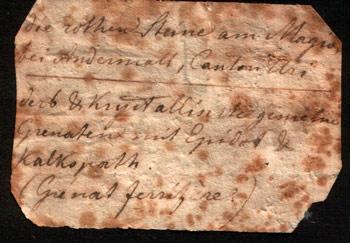 die rothen Steine am
bei Andermatt, Canton Uri
derb & krystalliniste gemeine
Grenaten mit Epidot &
Kalkspath.
(Grenat ferrifère?)